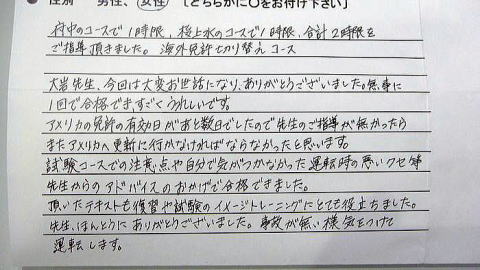 ● 性別　男性、女性　【どちらかに〇をお付け下さい】
府中のコースで1時限、桜上水のコースで1時限、合計2時限を
ご指導頂きました。海外免許切り替えコース
大岩先生、今回は大変お世話になり、ありがとうございました。無事に
1回で合格できすごくうれしいです。
アメリカの免許の有効日があと数日でしたので先生のご指導が無かったら
またアメリカへ更新に行かなければならなかったと思います。
試験コースでの注意点や自分で気がつかなかった運転時の悪いクセ等
先生からのアドバイスのおかげで合格できました。
頂いたテキストも復習や試験のイメージトレーニングにとても役立ちました。
先生、ほんとうにありがとうございました。事故が無い様気をつけて
運転します。